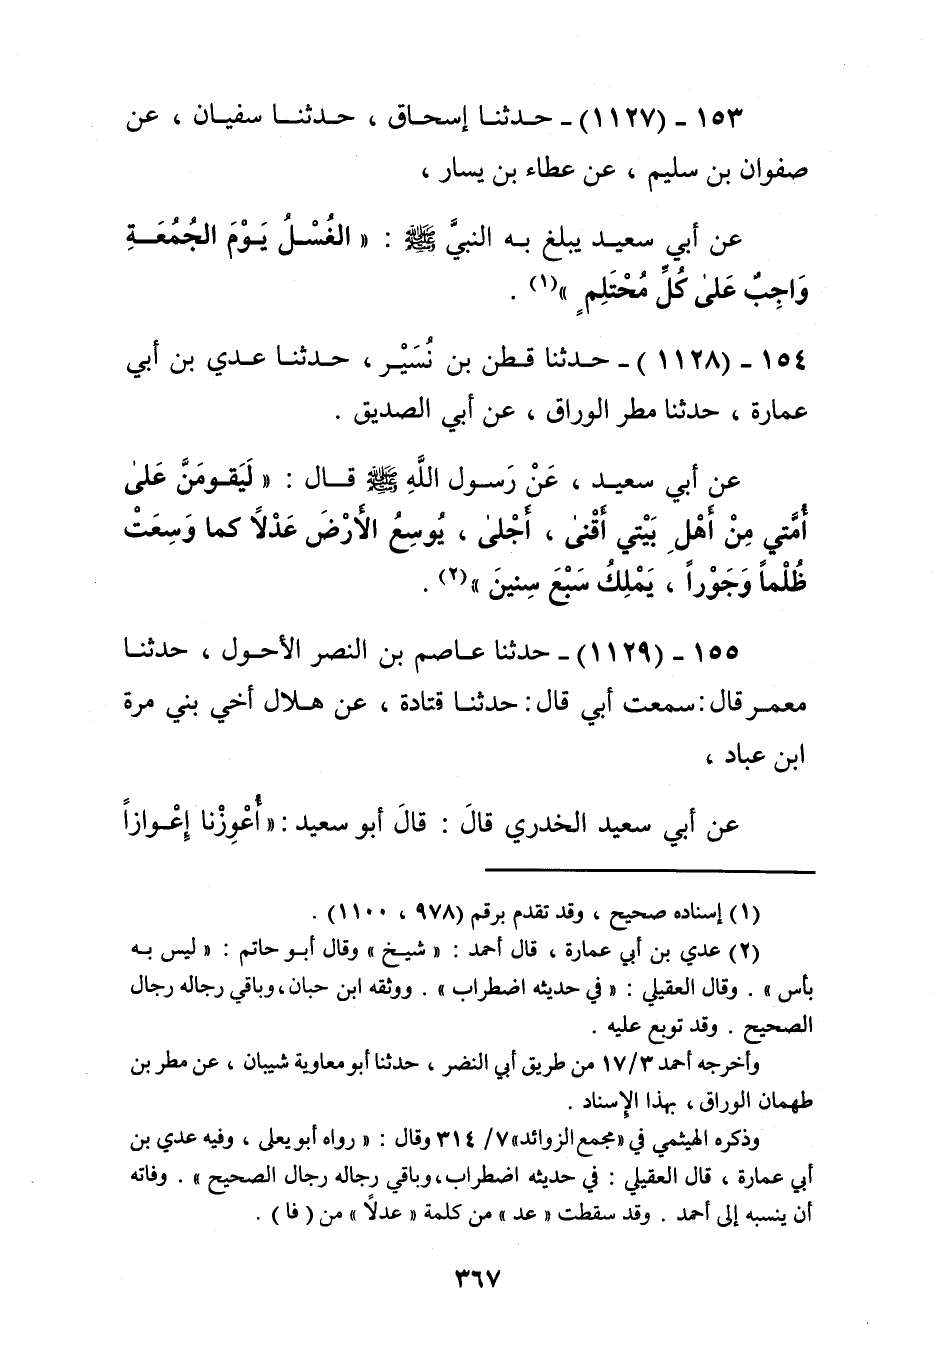 ١٥٣ ـ (١١٢٧) ـ حدثنا إسحاق ، حدثنا سفيان ، عن
صفوان بن سليم ، عن عطاء بن يسار ،
عن أبي سعيد يبلغ به النبيَّ ﷺ : « الغُسْلُ يَوْمَ الجُمُعَةِ
وَاجِبٌ عَلىٰ كُلِّ مُحْتَلِمٍ »(١) .
١٥٤ ـ (١١٢٨) ـ حدثنا قطن بن نُسَيْر ، حدثنا عدي بن أبي
عمارة ، حدثنا مطر الوراق ، عن أبي الصديق .
عن أبي سعيد ، عَنْ رَسول اللَّهِ ﷺ قال : « لَيَقومَنَّ عَلىٰ
أُمَّتي مِنْ أَهْلِ بَيْتي أَقْنىٰ ، أَجْلىٰ ، يُوسِعُ الأَرْضَ عَدْلاً كما وَسِعَتْ
ظُلْماً وَجَوْراً ، يَمْلِكُ سَبْعَ سِنينَ »(٢) .
١٥٥ ـ (١١٢٩) ـ حدثنا عاصم بن النصر الأحول ، حدثنا
معمر قال : سمعت أبي قال : حدثنا قتادة ، عن هلال أخي بني مرة
ابن عباد ،
عن أبي سعيد الخدري قالَ : قالَ أبو سعيد : « أُعْوِزْنا إِعْوازاً
(١) إسناده صحيح ، وقد تقدم برقم (٩٧٨ ، ١١٠٠) .
(٢) عدي بن أبي عمارة ، قال أحمد : « شيخ » وقال أبو حاتم : « ليس به
بأس » . وقال العقيلي : « في حديثه اضطراب » . ووثقه ابن حبان ، وباقي رجاله رجال
الصحيح . وقد توبع عليه .
وأخرجه أحمد ١٧/٣ من طريق أبي النضر ، حدثنا أبو معاوية شيبان ، عن مطر بن
طهمان الوراق ، بهذا الإسناد .
وذكره الهيثمي في «مجمع الزوائد» ٧/ ٣١٤ وقال : « رواه أبو يعلى ، وفيه عدي بن
أبي عمارة ، قال العقيلي : في حديثه اضطراب ، وباقي رجاله رجال الصحيح » . وفاته
أن ينسبه إلى أحمد . وقد سقطت « عد » من كلمة « عدلاً » من ( فا ) .
٣٦٧